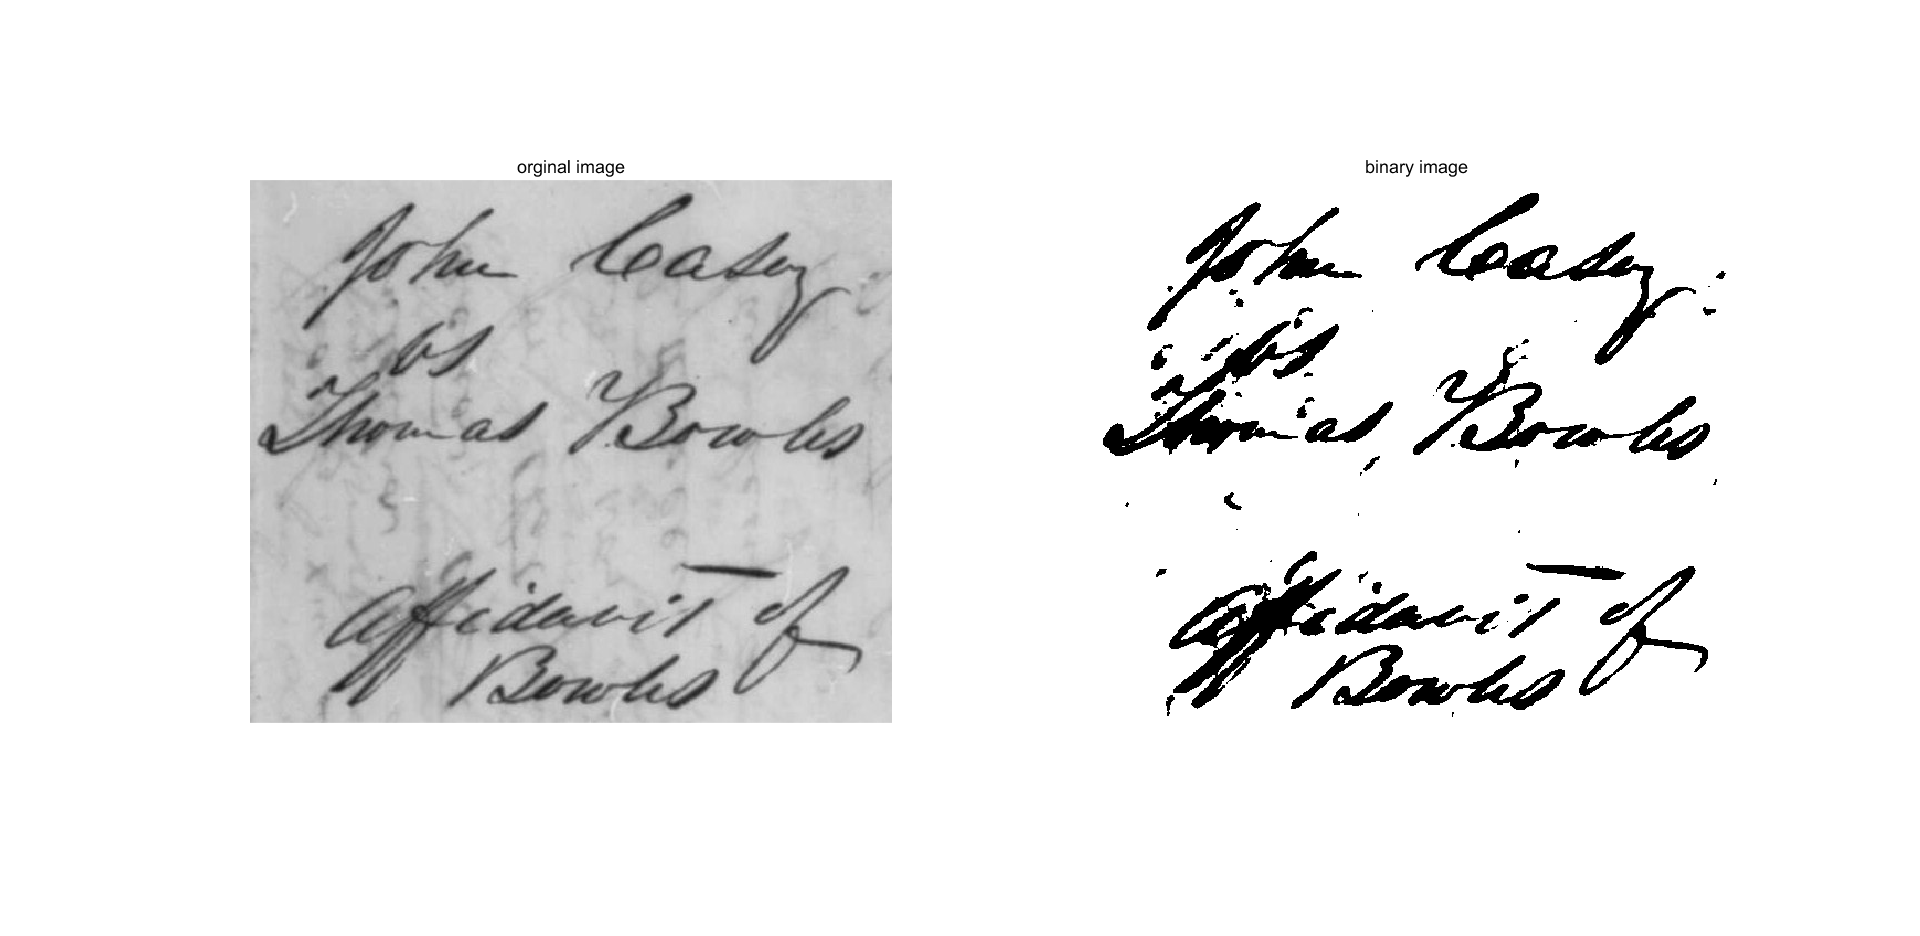 orginal image
John Casey
vs
Thomas Bowles
Affidavit of
Bowles
binary image
John Casey
vs
Thomas Bowles
Affidavit of
Bowles